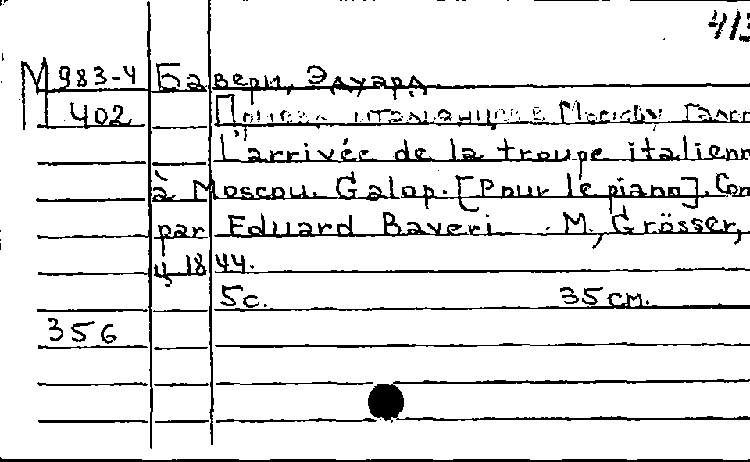 413
М 983-4 Бавери, Эдуард
402 Приезд итальянцев в Москву Галоп
L'arrivée de la troupe italienn
à Moscou. Galop. [Pour le piano]. Com
par Eduard Baveri. M., Grösser,
ц 1844.
5с. 35 см.
356